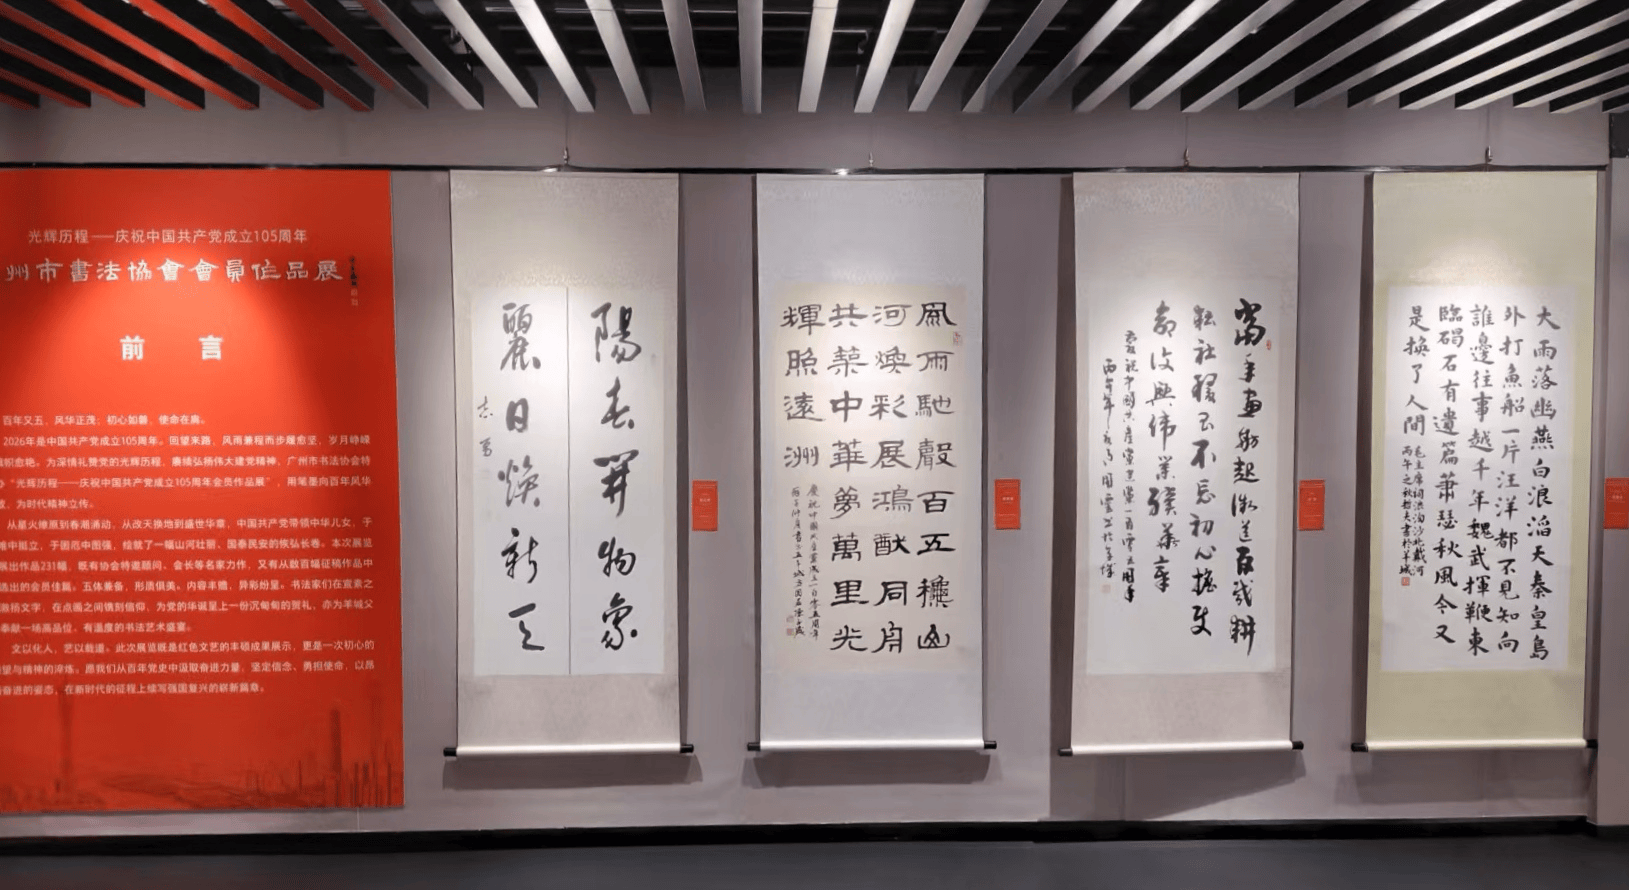 光辉历程——庆祝中国共产党成立105周年
州市書法協會會員作品展
前言
百年又五，风华正茂；初心如磐，使命在肩。
2026年是中国共产党成立105周年。回望来路，风雨兼程而步履愈坚，岁月峥嵘
愈艳。为深情礼赞党的光辉历程，赓续弘扬伟大建党精神，广州市书法协会特
“光辉历程——庆祝中国共产党成立105周年会员作品展”，用笔墨向百年风华
，为时代精神立传。
从星火燎原到春潮涌动，从改天换地到盛世华章，中国共产党带领中华儿女，于
难中挺立，于困厄中图强，绘就了一幅山河壮丽、国泰民安的恢弘长卷。本次展览
展出作品231幅，既有协会特邀顾问、会长等名家力作，又有从数百幅征稿作品中
选出的会员佳篇。五体兼备，形质俱美。内容丰赡，异彩纷呈。书法家们在宣素之
激扬文字，在点画之间镌刻信仰，为党的华诞呈上一份沉甸甸的贺礼，亦为羊城父
奉献一场高品位、有温度的书法艺术盛宴。
文以化人，艺以载道。此次展览既是红色文艺的丰硕成果展示，更是一次初心的
望与精神的淬炼。愿我们从百年党史中汲取奋进力量，坚定信念、勇担使命，以昂
奋进的姿态，在新时代的征程上续写强国复兴的崭新篇章。
陽春開物象
麗日煥新天
風雨馳聲百五穐山
河煥彩展鴻猷同舟
共築中華夢萬里光
輝照遠洲
慶祝中國共產黨成立一百零五周年
當年畫舫起
社稷不忘初心
復興偉業
慶祝中國共產黨建黨一百零五周年
丙午年
大雨落幽燕白浪滔天秦皇島
外打魚船一片汪洋都不見知向
誰邊往事越千年魏武揮鞭東
臨碣石有遺篇蕭瑟秋風今又
是換了人間
毛主席詞浪淘沙北戴河
丙午之秋